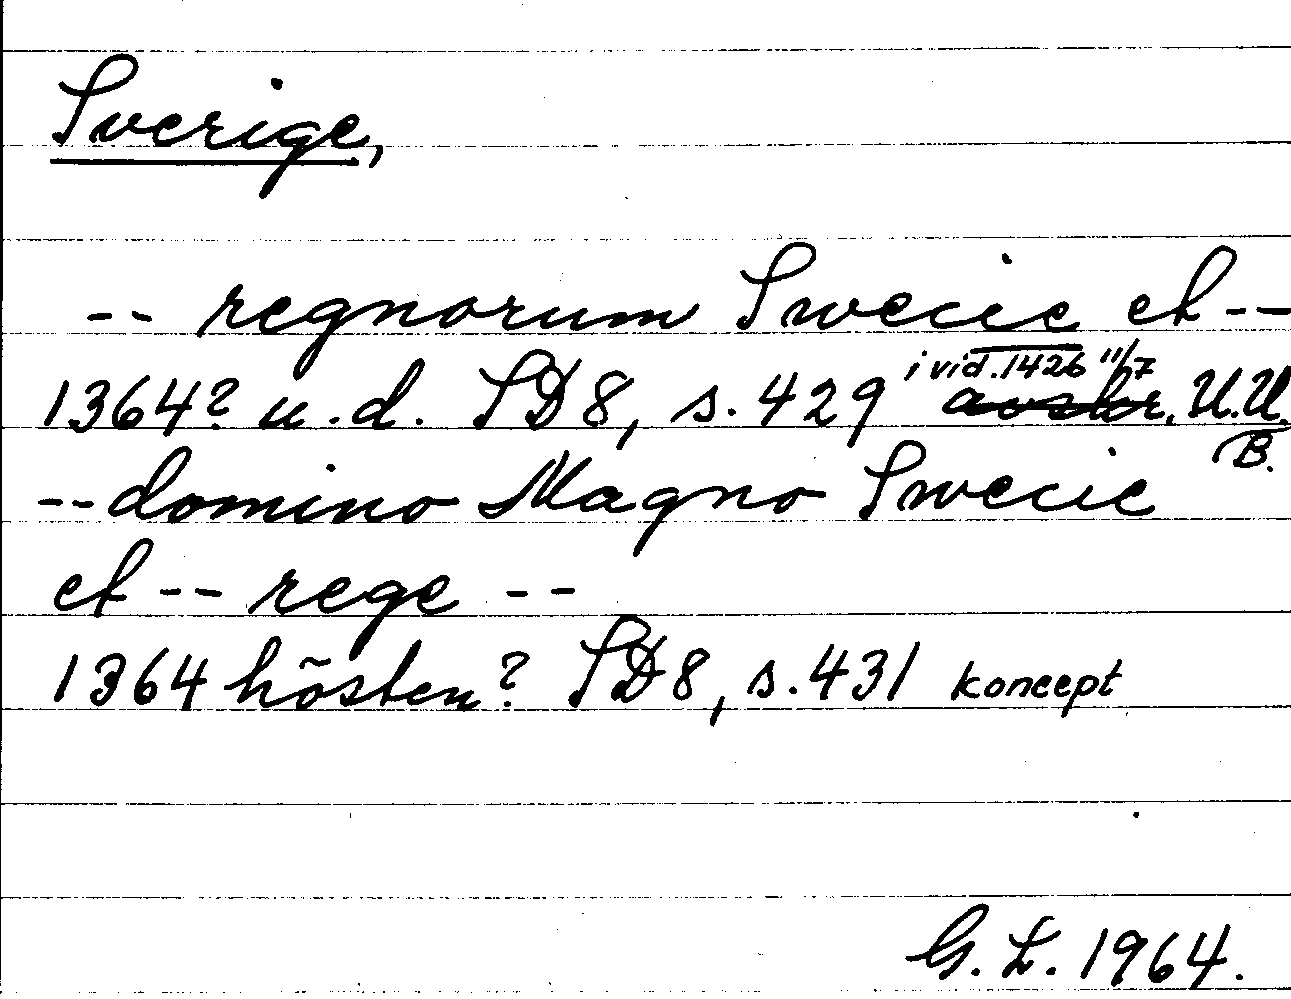 Sverige,
-- regnorum Swecie et --
i vid. 1426 11/7
1364? u.d. SD8, s. 429 avskr. U.U.
B.
-- domino Magno Swecie
et -- rege --
1364 hösten? SD8, s. 431 koncept
G. L. 1964.